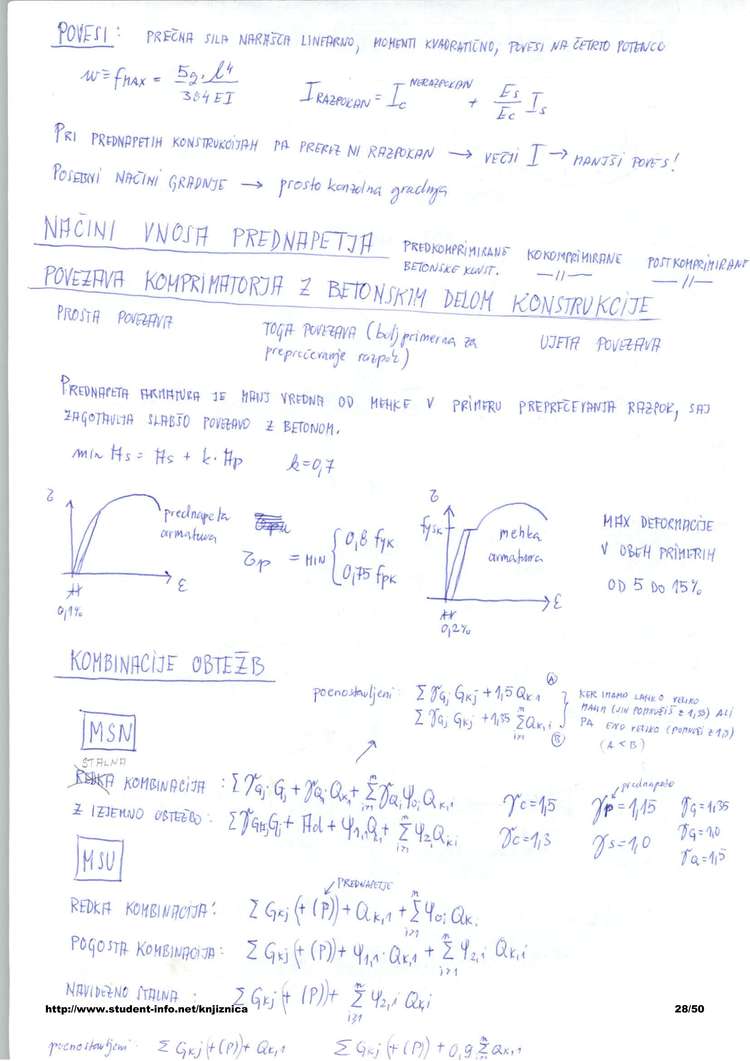 POVESI : PREČNA SILA NARAŠČA LINEARNO, MOMENTI KVADRATIČNO, POVESI NA ČETRTO POTENCO
w ≡ fMAX = 5g·l⁴ / 384EI   I RAZPOKAN = Ic NERAZPOKAN + Es/Ec Is
PRI PREDNAPETIH KONSTRUKCIJAH PA PREREZ NI RAZPOKAN → VEČJI I → MANJŠI POVES!
POSEBNI NAČINI GRADNJE → prosto konzolna gradnja
NAČINI VNOSA PREDNAPETJA   PREDKOMPRIMIRANE   KOKOMPRIMIRANE   POSTKOMPRIMIRANE
BETONSKE KONST.   —//—   —//—
POVEZAVA KOMPRIMATORJA Z BETONSKIM DELOM KONSTRUKCIJE
PROSTA POVEZAVA   TOGA POVEZAVA (bolj primerna za   UJETA POVEZAVA
preprečevanje razpok)
PREDNAPETA ARMATURA JE MANJ VREDNA OD MEHKE V PRIMERU PREPREČEVANJA RAZPOK, SAJ
ZAGOTAVLJA SLABŠO POVEZAVO Z BETONOM.
min As = As + k·Ap   k=0,7
prednapeta
armatura
ε
0,1%
σp = MIN { 0,8 fyk
0,75 fpk
fysk
mehka
armatura
ε
0,2%
MAX DEFORMACIJE
V OBEH PRIMERIH
OD 5 DO 15%
KOMBINACIJE OBTEŽB
poenostavljeni : Σ γGj Gkj + 1,5 Qk1   (A)
Σ γGj Gkj + 1,35 Σ Qk,i   (B)
KER IMAMO LAHKO VELIKO
MALIH (JIH POMNOŽIŠ Z 1,35) ALI
PA ENO VELIKO (POMNOŽI Z 1,5)
(A < B)
MSN
STALNA
REDKA KOMBINACIJA : Σ γGj Gj + γQ1 Qk1 + Σ γQi ψ0i Qk,i   γc=1,5   γp=1,15   γG=1,35
prednapeto
Z IZJEMNO OBTEŽBO : Σ γGA Gj + Ad + ψ1,1 Q1 + Σ ψ2i Qki   γc=1,3   γs=1,0   γG=1,0
γQ=1,5
MSU
PREDNAPETJE
REDKA KOMBINACIJA : Σ Gkj (+ (P)) + Qk,1 + Σ ψ0i Qk.
POGOSTA KOMBINACIJA : Σ Gkj (+ (P)) + ψ1,1 · Qk,1 + Σ ψ2,i Qk,i
NAVIDEZNO STALNA : Σ Gkj (+ (P)) + Σ ψ2,i Qki
http://www.student-info.net/knjiznica   28/50
poenostavljeni : Σ Gkj (+(P)) + Qk,1   Σ Gkj (+(P)) + 0,9 Σ Qk,1